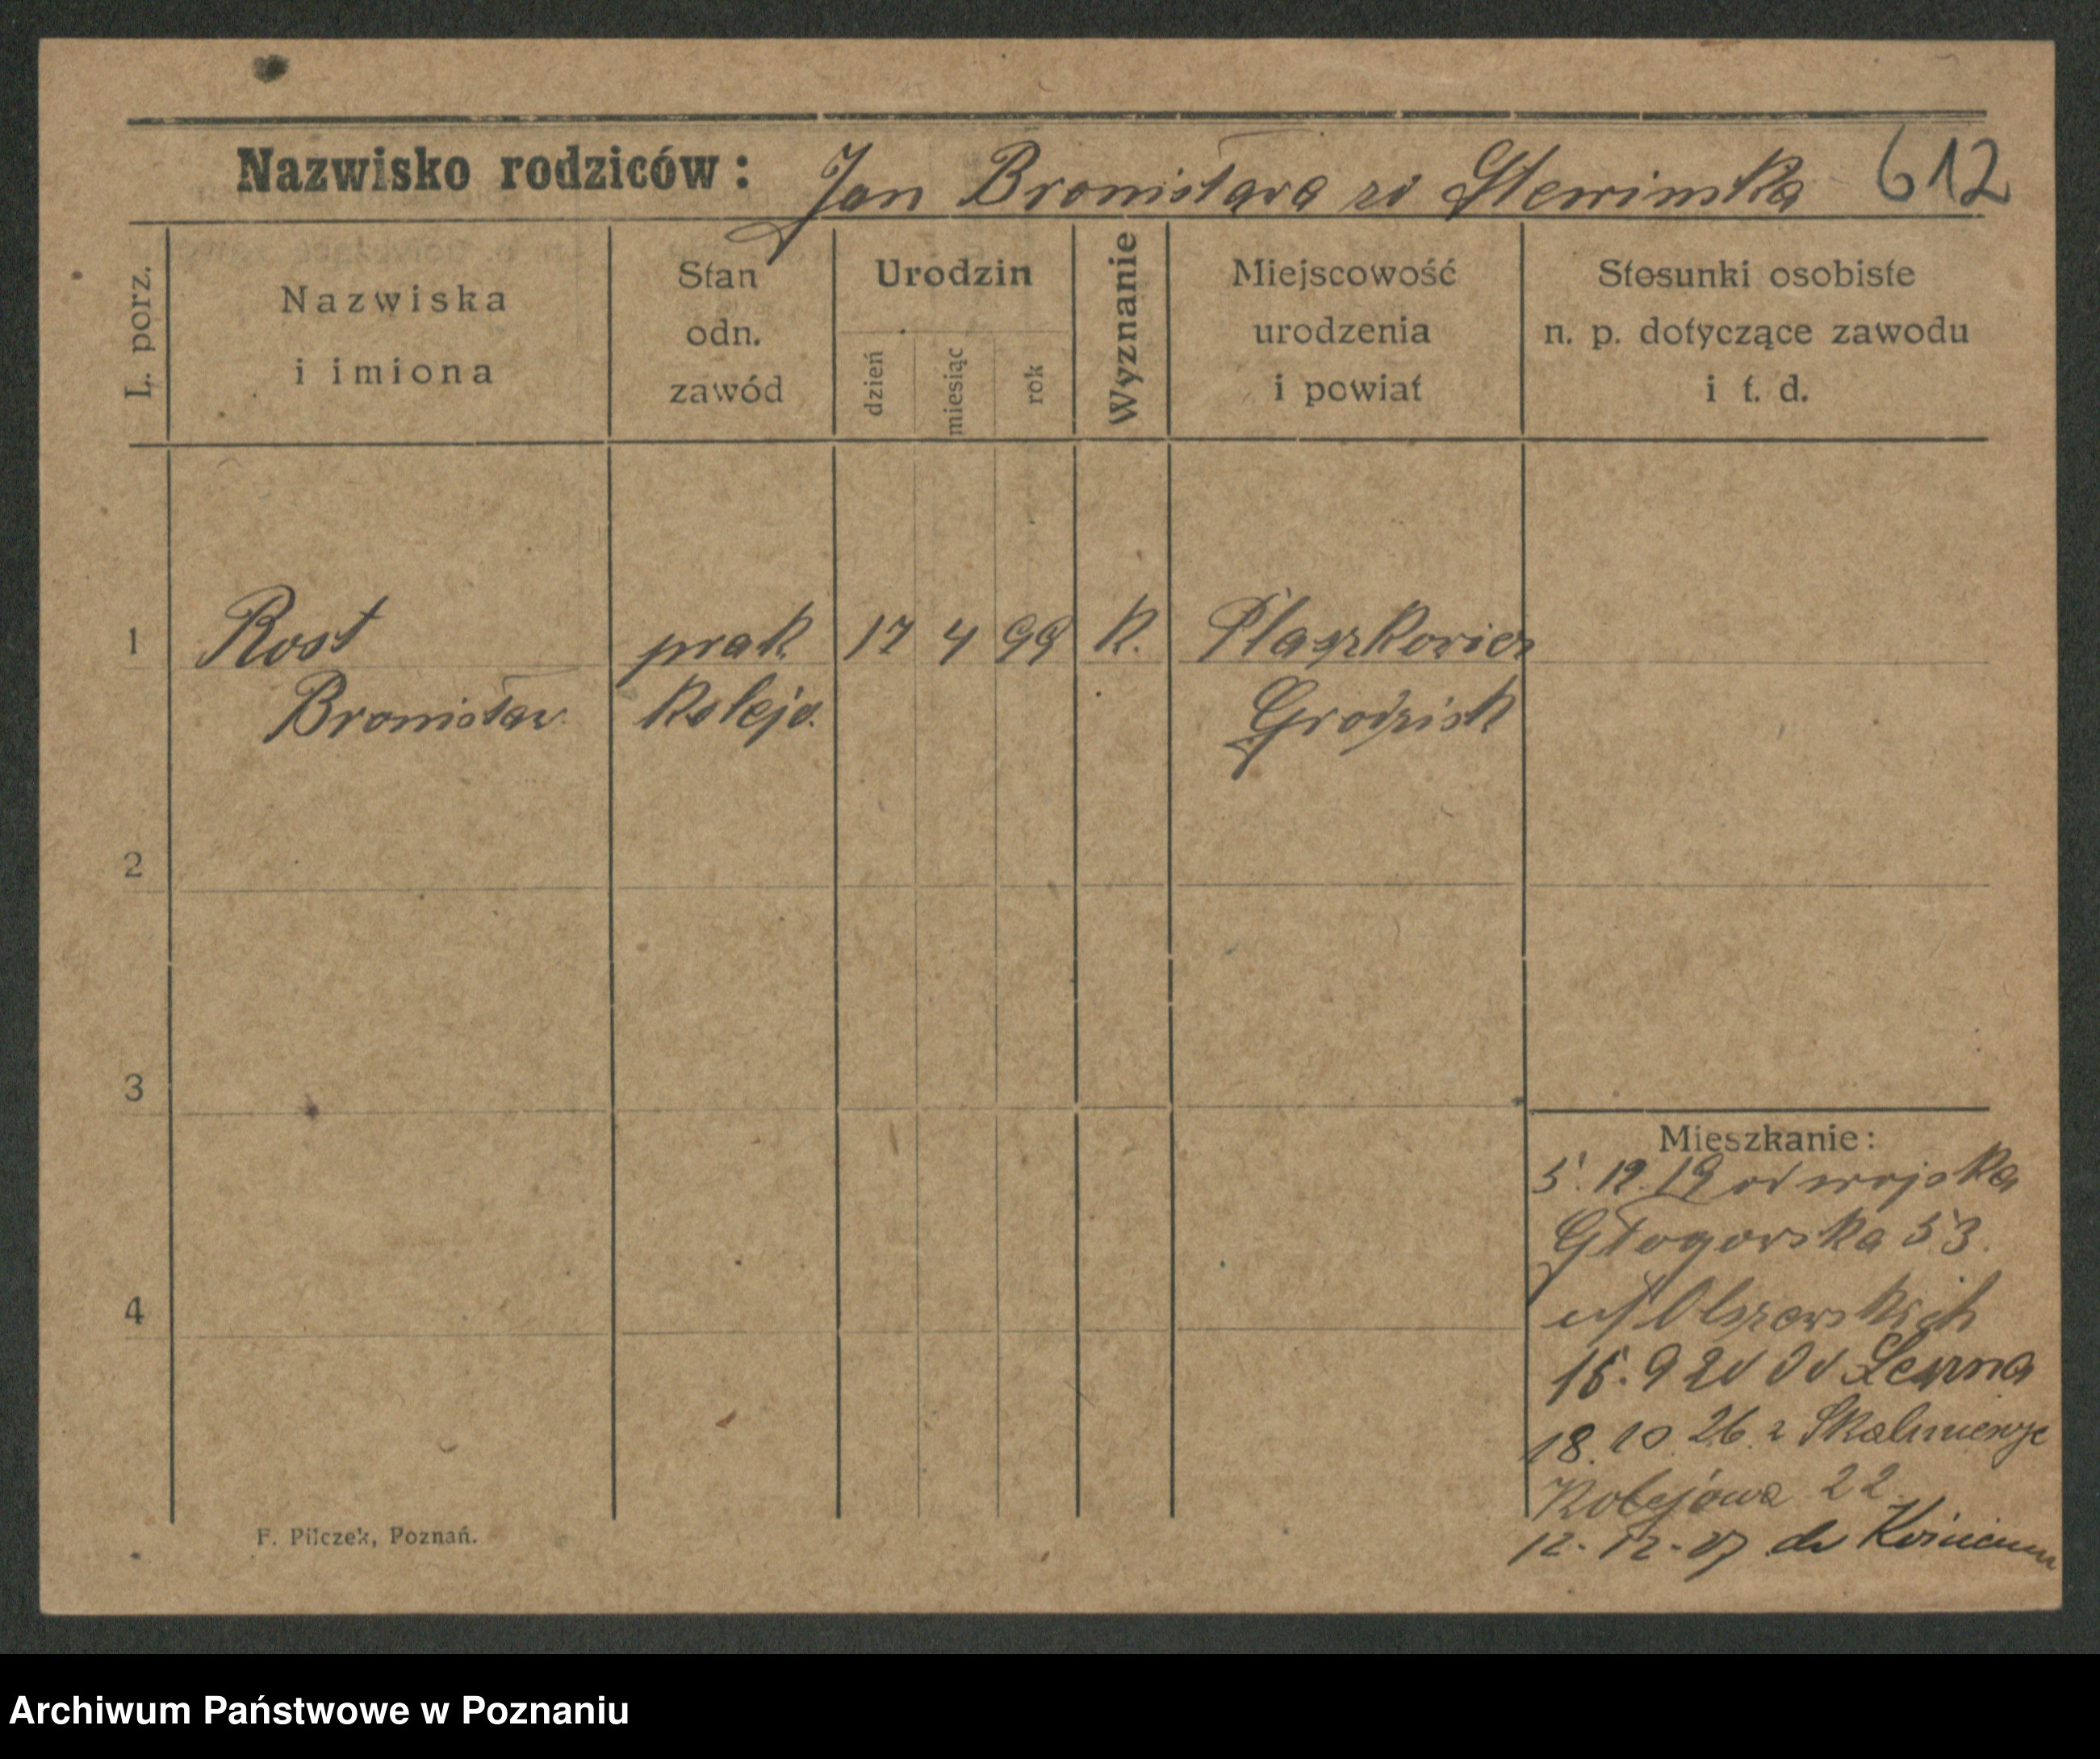 Nazwisko rodziców: Jan Bronisława 612
L. porz.
Nazwiska
i imiona
Stan
odn.
zawód
Urodzin
dzień
miesiąc
rok
Wyznanie
Miejscowość
urodzenia
i powiat
Stosunki osobiste
n. p. dotyczące zawodu
i t. d.
1 Rost prak. 17 4 99 K.
Bronisław Koleja. Grodzisk
2
3
4
Mieszkanie:
5. 12. 19 od wojska
Głogowska 53.
u/ Olszewskich
15. 9 20 do
18. 10. 26. z Skalmierzyc
Kolejowa 22.
12. 12. 27 do
F. Pilczek, Poznań.
Archiwum Państwowe w Poznaniu